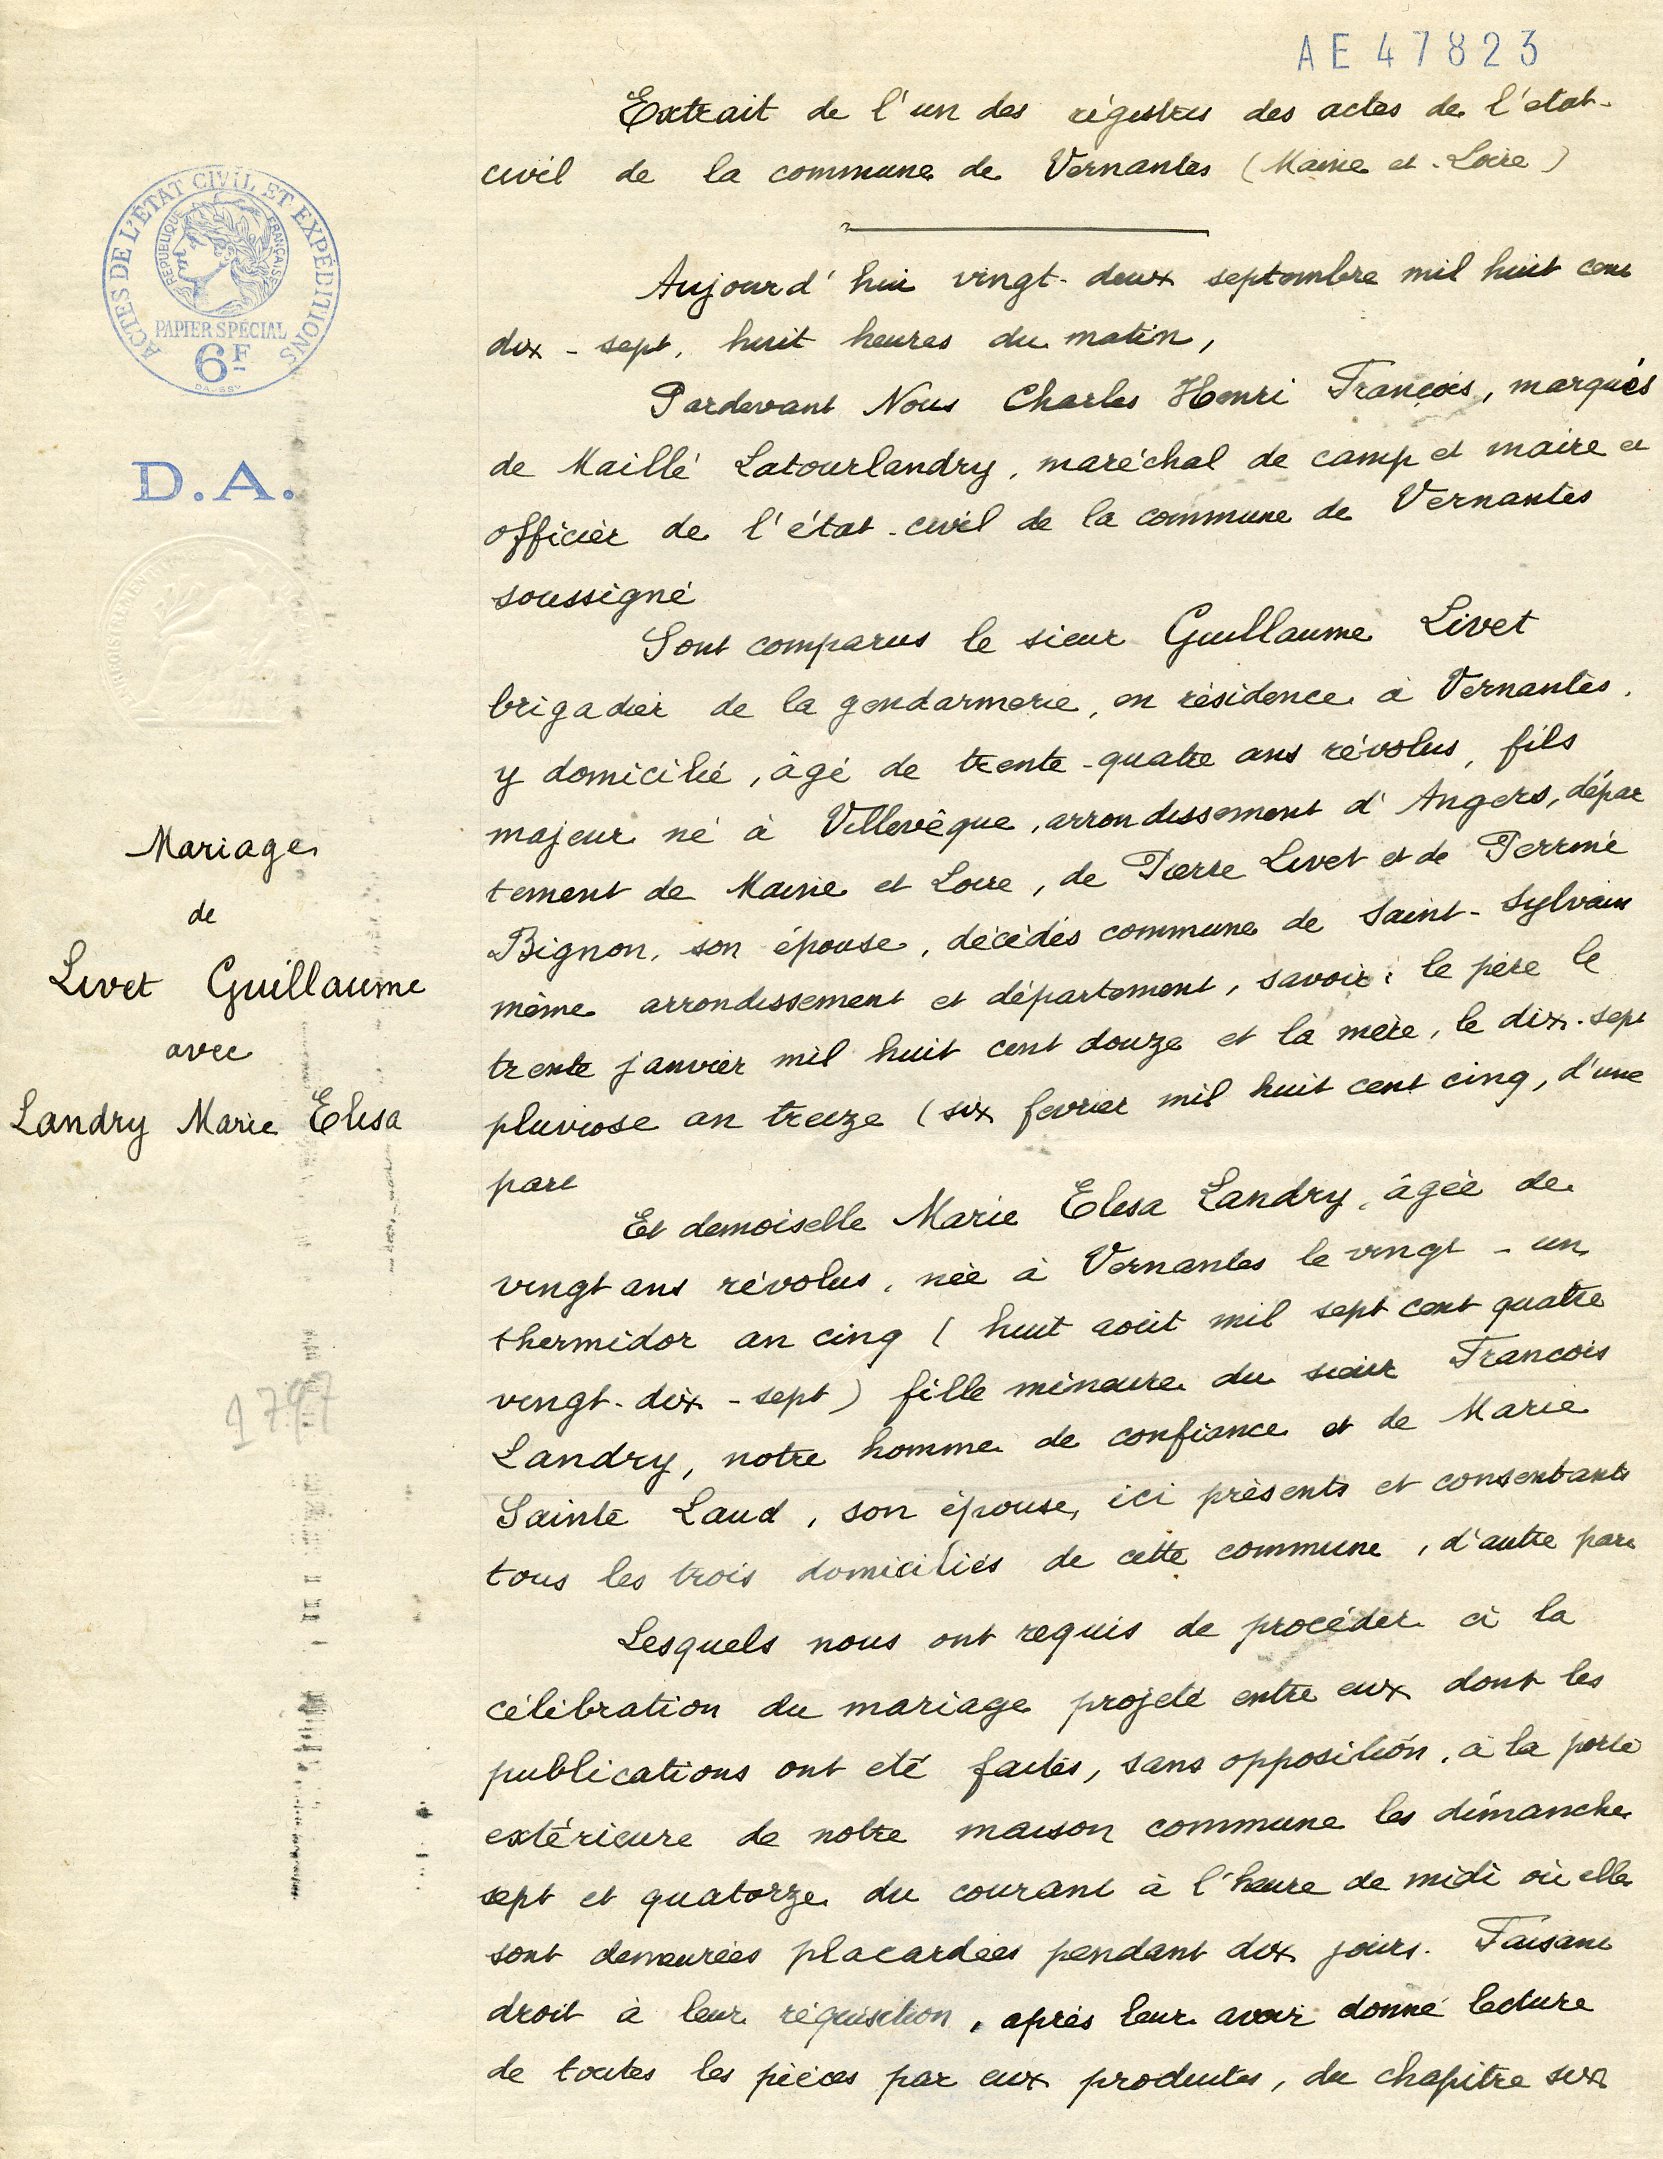 AE 47823
Extrait de l'un des régistres des actes de l'état-
civil de la commune de Vernantes (Maine et-Loire)
ACTES DE L'ÉTAT CIVIL ET EXPÉDITIONS
RÉPUBLIQUE FRANÇAISE
PAPIER SPÉCIAL
6F
D.A.
Aujourd'hui vingt-deux septembre mil huit cent
dix-sept, huit heures du matin,
Pardevant Nous Charles Henri François, marquis
de Maillé Latourlandry, maréchal de camp et maire et
officier de l'état-civil de la commune de Vernantes
soussigné
Sont comparus le sieur Guillaume Livet
brigadier de la gendarmerie, en résidence à Vernantes,
y domicilié, âgé de trente-quatre ans révolus, fils
majeur né à Villevêque, arrondissement d'Angers, dépar
tement de Maine et Loire, de Pierre Livet et de Perrine
Bignon, son épouse, décédés commune de Saint-Sylvain
même arrondissement et département, savoir: le père le
trente janvier mil huit cent douze et la mère, le dix-sept
pluviose an treize (six fevrier mil huit cent cinq, d'une
part
Mariage
de
Livet Guillaume
avec
Landry Marie Elisa
1797
Et demoiselle Marie Elisa Landry, âgée de
vingt ans révolus, née à Vernantes le vingt-un
thermidor an cinq (huit août mil sept cent quatre
vingt-dix-sept) fille mineure du sieur Francois
Landry, notre homme de confiance et de Marie
Sainte Laud, son épouse, ici présents et consentants
tous les trois domiciliés de cette commune, d'autre part
Lesquels nous ont requis de procéder à la
célébration du mariage projeté entre eux dont les
publications ont eté faites, sans opposition, à la porte
extérieure de notre maison commune les dimanches
sept et quatorze du courant à l'heure de midi où elles
sont demeurées placardées pendant dix jours. Faisant
droit à leur réquisition, après leur avoir donné lecture
de toutes les pièces par eux produites, du chapitre six